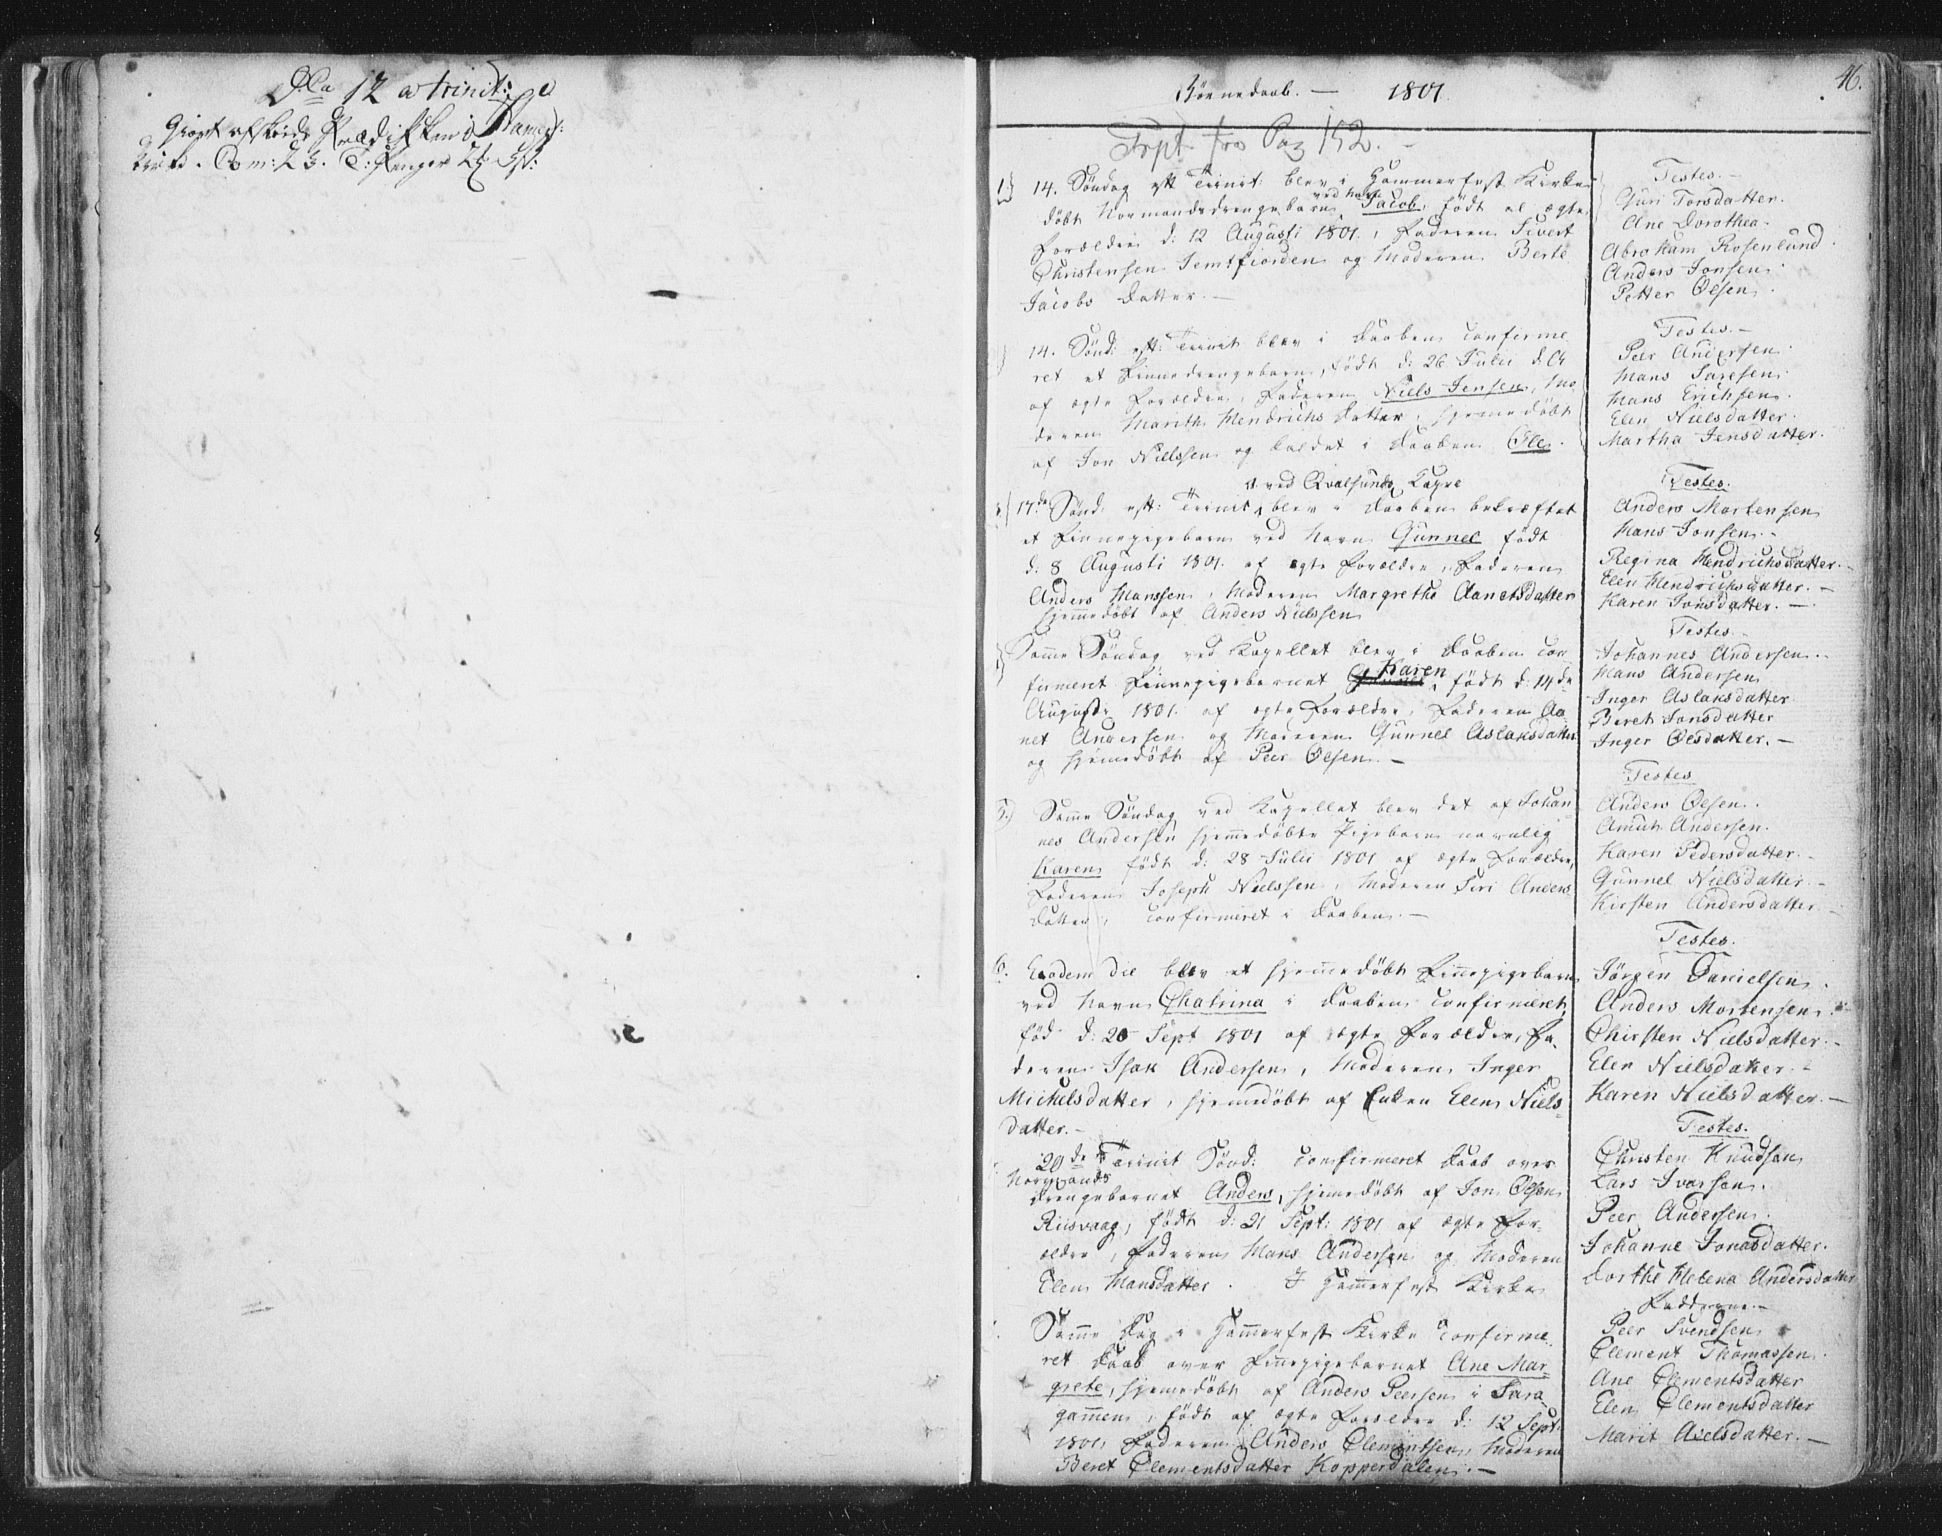 Dca 12 a trinit:
46.
Børnedaab. — 1801.
Frpt. fra Pag 152. -
1) 14. Søndag eft Trinit: blev i Hammerfest Kirke
døbt Normandsdrengebarn ved Navn Jacob, født af ægte
Forældre d: 12 Augusti 1801., Faderen Sivert
Christensen Jemtfiorden og Moderen Berte
Jacobs Datter. —
Testes. —
Guri Torsdatter.
Ane Dorothea.
Abraham Rosenlund.
Anders Jonsen.
Petter Olsen.
14. Sønd: eft: Trinit blev i Daaben confirme
ret et Finnedrengebarn, født d: 26 Julii d. A
af ægte Forældre, Faderen Niels Jensen, Mo
deren Marith Hendrichs Datter, hjemmedøbt
af Jon Nielssen og kaldet i Daaben Ole.
Testes. —
Peer Andersen.
Hans Larssen.
Hans Erichsen.
Elen Nielsdatter.
Martha Jensdatter.
ved Qvalsunds Capel
17de Sønd: eft: Trinit blev i Daaben bekræftet
et Finnepigebarn ved Navn Gunnel født
d. 8 Augusti 1801. af ægte Forældre, Faderen
Anders Hanssen, Moderen Margrethe Aanetsdatter
hjemmedøbt af Anders Nielssen
Testes.
Anders Mortensen
Hans Jonsen. -
Regina Hendrichsdatter. -
Elen Hendrichsdatter. -
Karen Jonsdatter. —
Samme Søndag ved Kapellet blev i Daaben con
firmeret Finnepigebarnet Karen, født d: 14de
Augusti 1801. af ægte Forældre, Faderen Aa
net Andersen og Moderen Gunnel Aslaksdatter
og hjemmedøbt af Peer Olsen. —
Testes. —
Johannes Andersen. -
Hans Andersen
Inger Aslaksdatter
Beret Jonsdatter
Inger Olsdatter. —
5.) Samme Søndag ved Kapellet blev det af Johan
nes Andersen hjemmedøbte Pigebarn navnlig
Karen, født d: 28 Julii 1801 af ægte Forældre,
Faderen Joseph Nielssen, Moderen Siri Anders
Datter, confirmeret i Daaben. —
Testes
Anders Olsen.
Amuth Andersen.
Karen Pedersdatter. -
Gunnel Nielsdatter. -
Kirsten Andersdatter. -
6. Eodem die blev et hjemmedøbt Finnepigebarn
ved Navn Chatrina i Daaben confirmeret,
fød d: 20 Sept 1801 af ægte Forældre, Fa-
deren Isak Andersen, Moderen Inger
Michelsdatter, hjemmedøbt af Enken Elen Niels-
datter. —
Testes.
Jørgen Danielsen.
Anders Mortensen.
Chirsten Nielsdatter. -
Elen Nielsdatter. -
Karen Nielsdatter. —
20de Trinit Sønd: confirmeret Daab over
Normands
drengebarnet Anders, hjemmedøbt af Jon Olsen
Riisvaag, født d: 21 Sept: 1801 af ægte For-
ældre, Faderen Hans Andersen og Moderen
Elen Hansdatter. I Hammerfest Kirke
Testes.
Christen Knudsen
Lars Ivarsen.
Peer Andersen.
Johanne Jonasdatter.
Dorthe Helena Andersdatter
Samme Dag i Hammerfest Kirke confirme-
ret Daab over Finnepigebarnet Ane Mar-
grete, hjemmedøbt af Anders Peersen i Sara
gammen, født af ægte Forældre d: 12 Sept:
1801, Faderen Anders Clementsen, Moderen
Beret Clementsdatter Kopperdalen. —
Fadderne. —
Peer Svendsen
Clement Thomassen.
Ane Clementsdatter
Elen Clementsdatter
Marit Nielsdatter. —